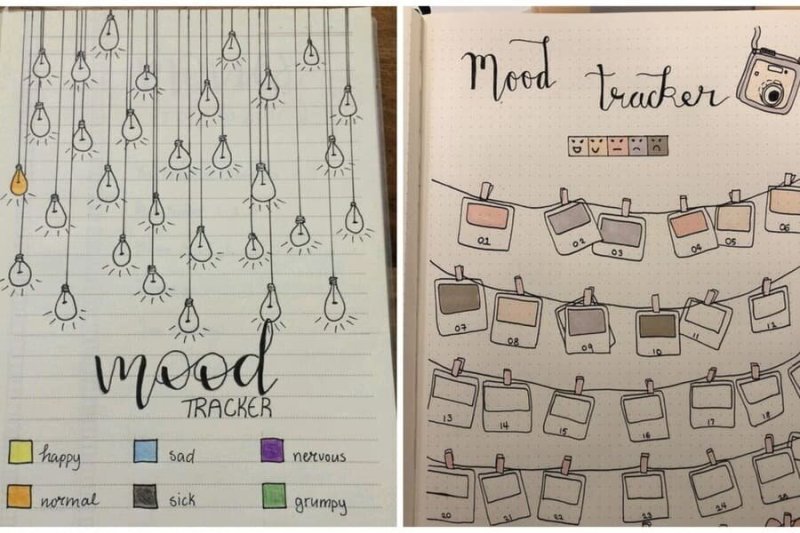 mood
TRACKER
happy sad nervous
normal sick grumpy
Mood tracker
01 02 03 04 05 06
07 08 09 10 11 12
13 14 15 16 17 18
20 21 22 23 24